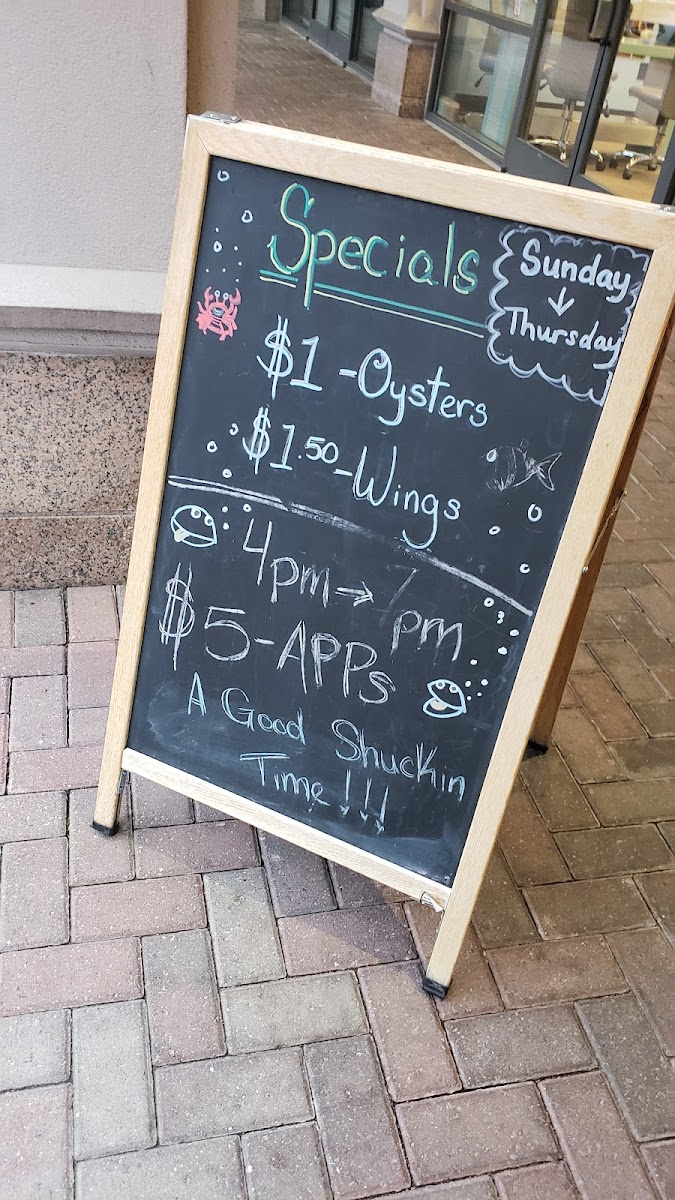 Specials
Sunday
↓
Thursday
$1 - Oysters
$1.50 - Wings
4pm → 7pm
$5 - APPs
A Good Shuckin
Time!!!